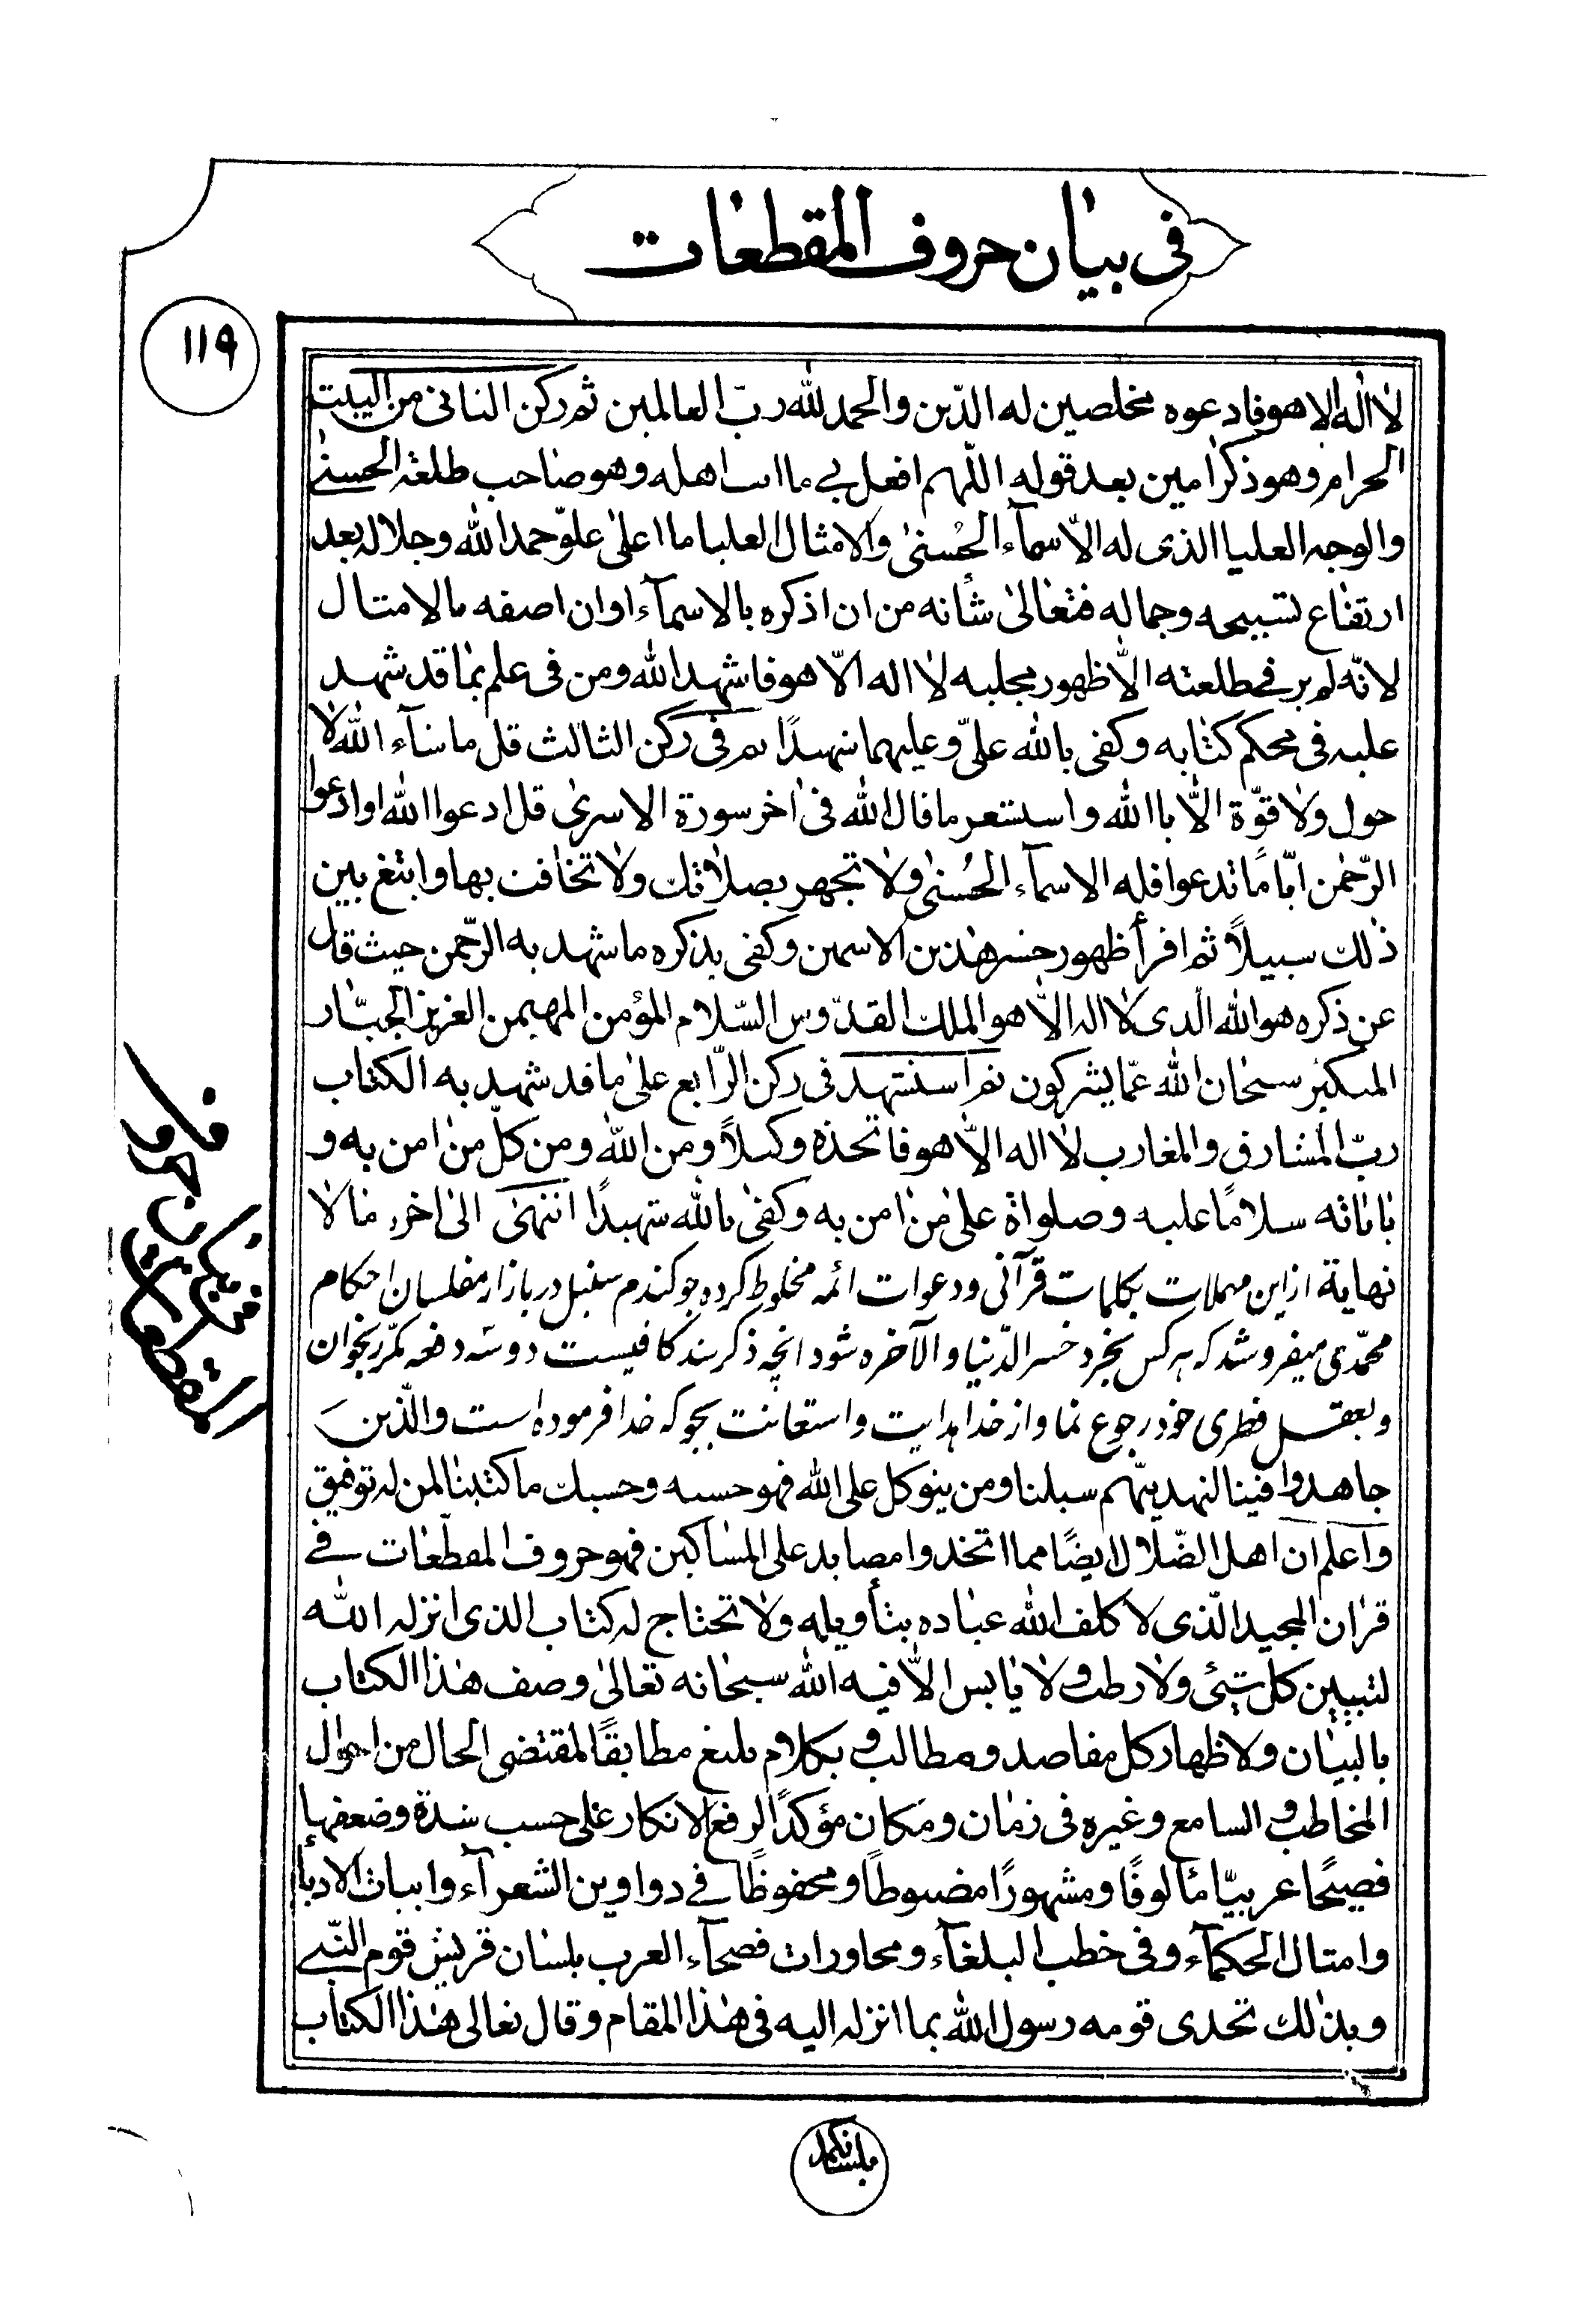 فی بیان حروف المقطعات
١١٩
لا اله الا هو فادعوه مخلصین له الدّین والحمد لله ربّ العالمین ثم رکن الثانی من البیت
الحرام وهو ذکر امین بعد قوله اللّهم افعل بی ما انت اهله وهو صاحب طلعة الحسنی
والوجه العلیا الذی له الاسمآء الحُسنیٰ والامثال العلیا ما اعلیٰ علوّ حمد الله وجلاله بعد
ارتفاع تسبیحه وجماله فتعالیٰ شأنه من ان اذکره بالاسمآء او ان اصفه بالامثال
لانّه لم یر فی طلعته الّا ظهور مجلیه لا اله الّا هو فاشهد الله ومن فی علم بما قد شهد
علیه فی محکم کتابه وکفی بالله علیّ وعلیهما شهیدًا ثم فی رکن الثالث قل ما شآء الله لا
حول ولا قوّة الّا باالله واستشعر ما قال الله فی اخر سورة الاسریٰ قل ادعوا الله او ادعوا
الرّحمٰن ایّامّا تدعوا فله الاسمآء الحُسنیٰ ولا تجهر بصلاتک ولا تخافت بها وابتغ بین
ذلک سبیلاً ثم اقرأ ظهور هٰذین الاسمین وکفی بذکره ما شهد به الرّحمن حیث قال
عن ذکره هو الله الّذی لا اله الّا هو الملک القدّوس السّلام المؤمن المهیمن العزیز الجبّار
المتکبّر سبحان الله عمّا یشرکون ثم استشهد فی رکن الرّابع علیٰ ما قد شهد به الکتاب
ربّ المشارق والمغارب لا اله الّا هو فاتخذه وکیلاً ومن الله ومن کلّ من امن به و
بایاته سلامًا علیه وصلواة علیٰ من امن به وکفیٰ بالله شهیدًا انتهیٰ الیٰ اخره ما لا
نهایة از این مهملات بکلمات قرآنی ودعوات ائمه مخلوط کرده جو کندم سنبل در بازار مفلسان احکام
محمّدی میفروشد که هر کس بخرد خسر الدّنیا والآخره شود انچه ذکر شد کافیست دو سه دفعه مکرر بخوان
وبعقل فطری خود رجوع نما و از خدا هدایت واستعانت بجو که خدا فرموده است والّذینَ
جاهدوا فینا لنهدینّهم سبلنا ومن یتوکل علی الله فهو حسبه وحسبک ما کتبنا لمن له توفیق
واعلم ان اهل الضّلال ایضًا مما اتخذوا مصاید علی المساکین فهو حروف المقطّعات فی
قران المجید الّذی لا کلف الله عباده بتأویله ولا تحتاج له کتاب الذی انزله الله
لتبیین کل شیئ ولا رطب ولا یابس الّا فیه الله سبحانه تعالیٰ وصف هذا الکتاب
بالبیان ولاظهار کل مقاصد ومطالب و بکلام بلیغ مطابقًا لمقتضی الحال من احوال
المخاطب و السامع وغیره فی زمان ومکان مؤکدًا لرفع الانکار علی حسب شدة وضعفها
فصیحًا عربیّا مألوفًا ومشهورًا مضبوطًا ومحفوظًا فی دواوین الشعرآء وابیات الادبآ
وامثال الحکمآء وفی خطب البلغآء ومحاورات فصحآء العرب بلسان قریش قوم النّبی
وبذلک تحدی قومه رسول الله بما انزله الیه فی هذا المقام وقال تعالی هذا الکتاب
المقطعات